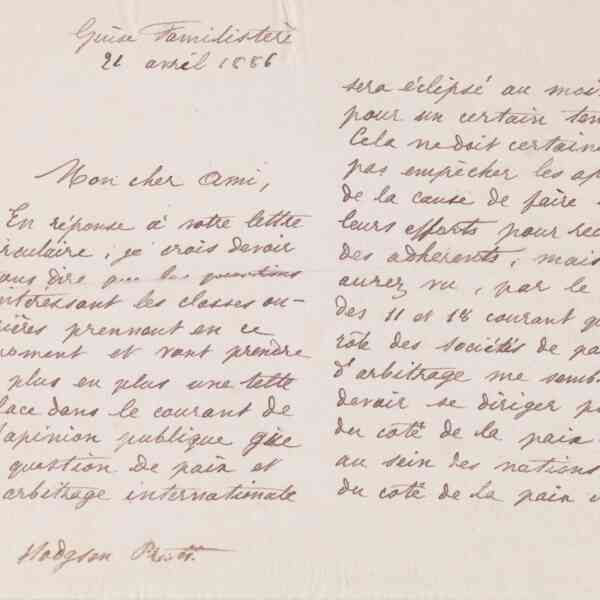 Guise Familistère
21 avril 1886
Mon cher Ami,
En réponse à votre lettre
irculaire, je crois devoir
ous dire que les questions
ntéressant les classes ou-
rières prennent en ce
moment et vont prendre
plus en plus une telle
lace dans le courant de
'opinion publique que
question de paix et
arbitrage internationale
Hodgson Pratt.
sera éclipsé au moi
pour un certain tem
Cela ne doit certaine
pas empêcher les ap
de la cause de faire
leurs efforts pour rec
des adhérents; mais
aurez vu, par le
des 11 et 18 courant qu
rôle des sociétés de pa
d'arbitrage me semb
devoir se diriger p
du coté de la paix
au sein des nations
du coté de la paix